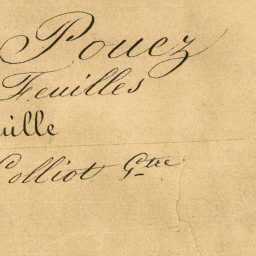 Poucz
Feuilles
uille
Colliot Gtte